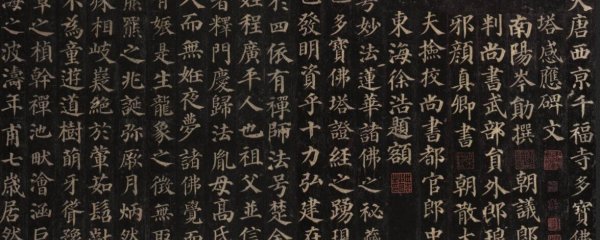 大唐西京千福寺多寶佛
塔感應碑文
南陽岑勛撰 朝議郎
判尚書武部員外郎琅
邪顏真卿書 朝散大
夫撿校尚書都官郎中
東海徐浩題額
粵妙法蓮華諸佛之秘藏
也多寶佛塔證經之踴現
也發明資乎十力弘建在
於四依有禪師法號楚金
姓程廣平人也祖父並信
著釋門慶歸法胤母高氏
久而無妊夜夢諸佛覺而
有娠是生龍象之徵無取
熊羆之兆誕彌厥月炳然
殊相岐嶷絕於葷茹髫齔
不為童遊道樹萌牙聳豫
章之楨幹禪池畎澮涵巨
海之波濤年甫七歲居然